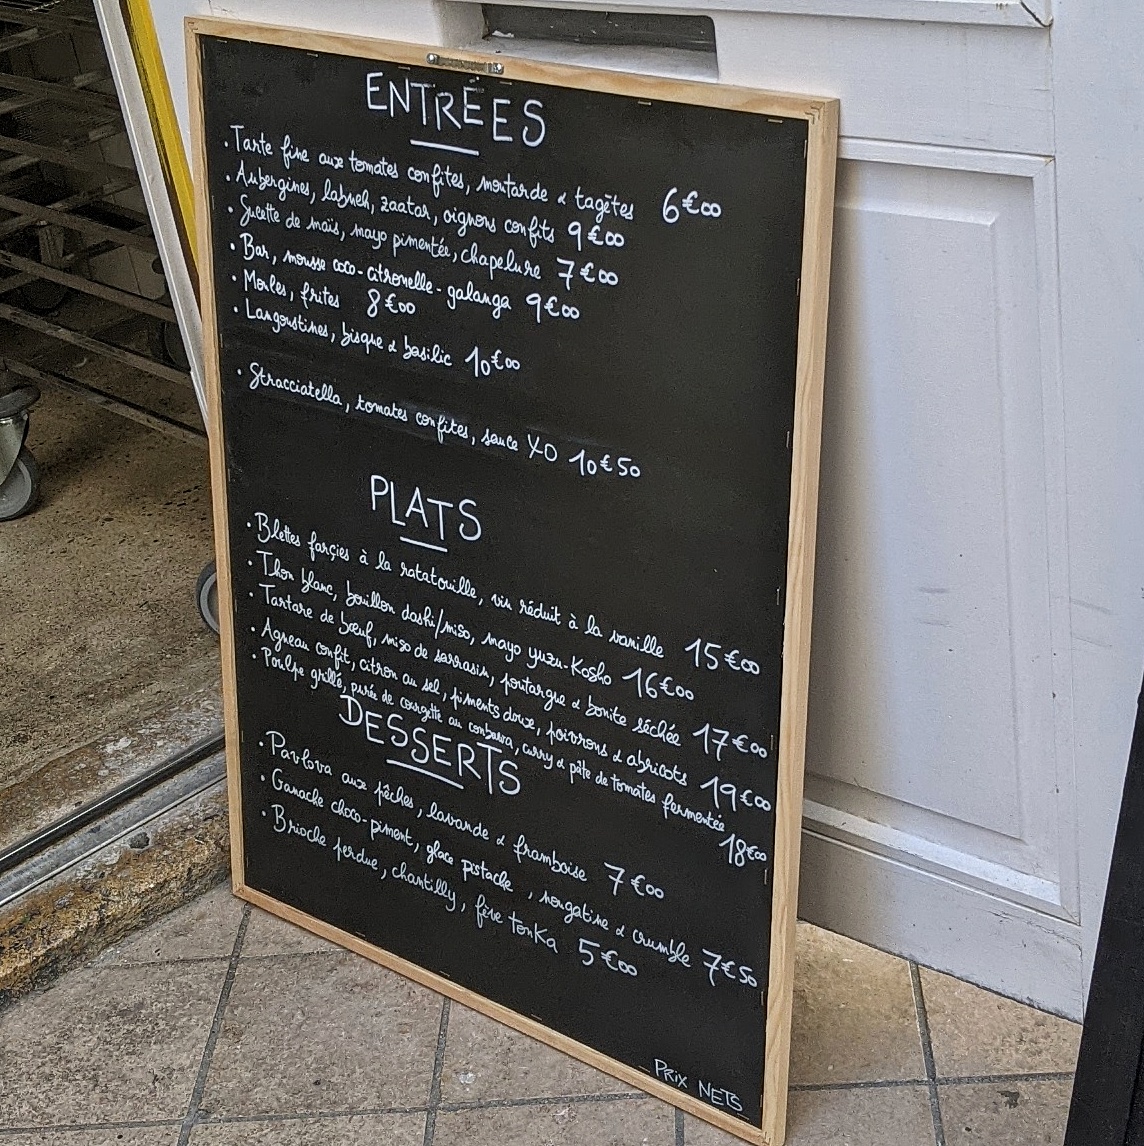 ENTRÉES
• Tarte fine aux tomates confites, moutarde & tagètes 6€00
• Aubergines, labneh, zaatar, oignons confits 9€00
• Sucette de maïs, mayo pimentée, chapelure 7€00
• Bar, mousse coco-citronelle-galanga 9€00
• Moules, frites 8€00
• Langoustines, bisque & basilic 10€00
• Stracciatella, tomates confites, sauce XO 10€50
PLATS
• Blettes farçies à la ratatouille, vin réduit à la vanille 15€00
• Thon blanc, bouillon dashi/miso, mayo yuzu-Kosho 16€00
• Tartare de bœuf, miso de sarrasin, poutargue & bonite séchée 17€00
• Agneau confit, citron au sel, piments doux, poivrons & abricots 19€00
• Poulpe grillé, purée de courgette au combava, curry & pâte de tomates fermentée
18€00
DESSERTS
• Pavlova aux pêches, lavande & framboise 7€00
• Ganache choco-piment, glace pistache, nougatine & crumble 7€50
• Brioche perdue, chantilly, fève tonKa 5€00
PRIX NETS